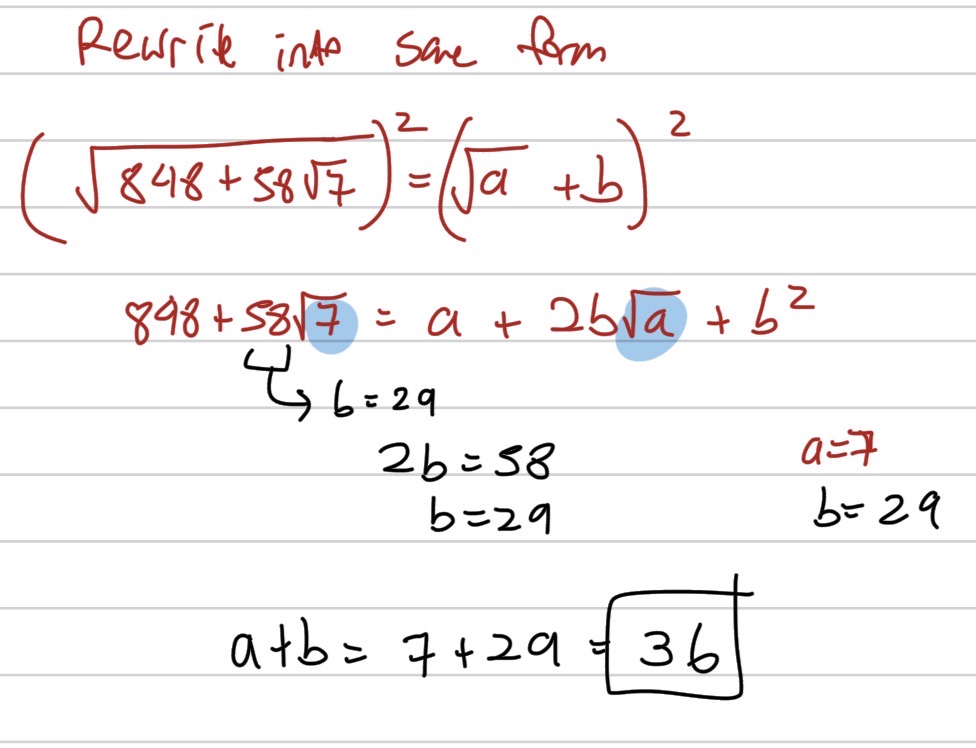 Rewrite into same form
(√848+58√7)² = (√a + b)²
898+58√7 = a + 2b√a + b²
→ b = 29
2b = 58
a=7
b=29
b= 29
a+b = 7+29 = 36